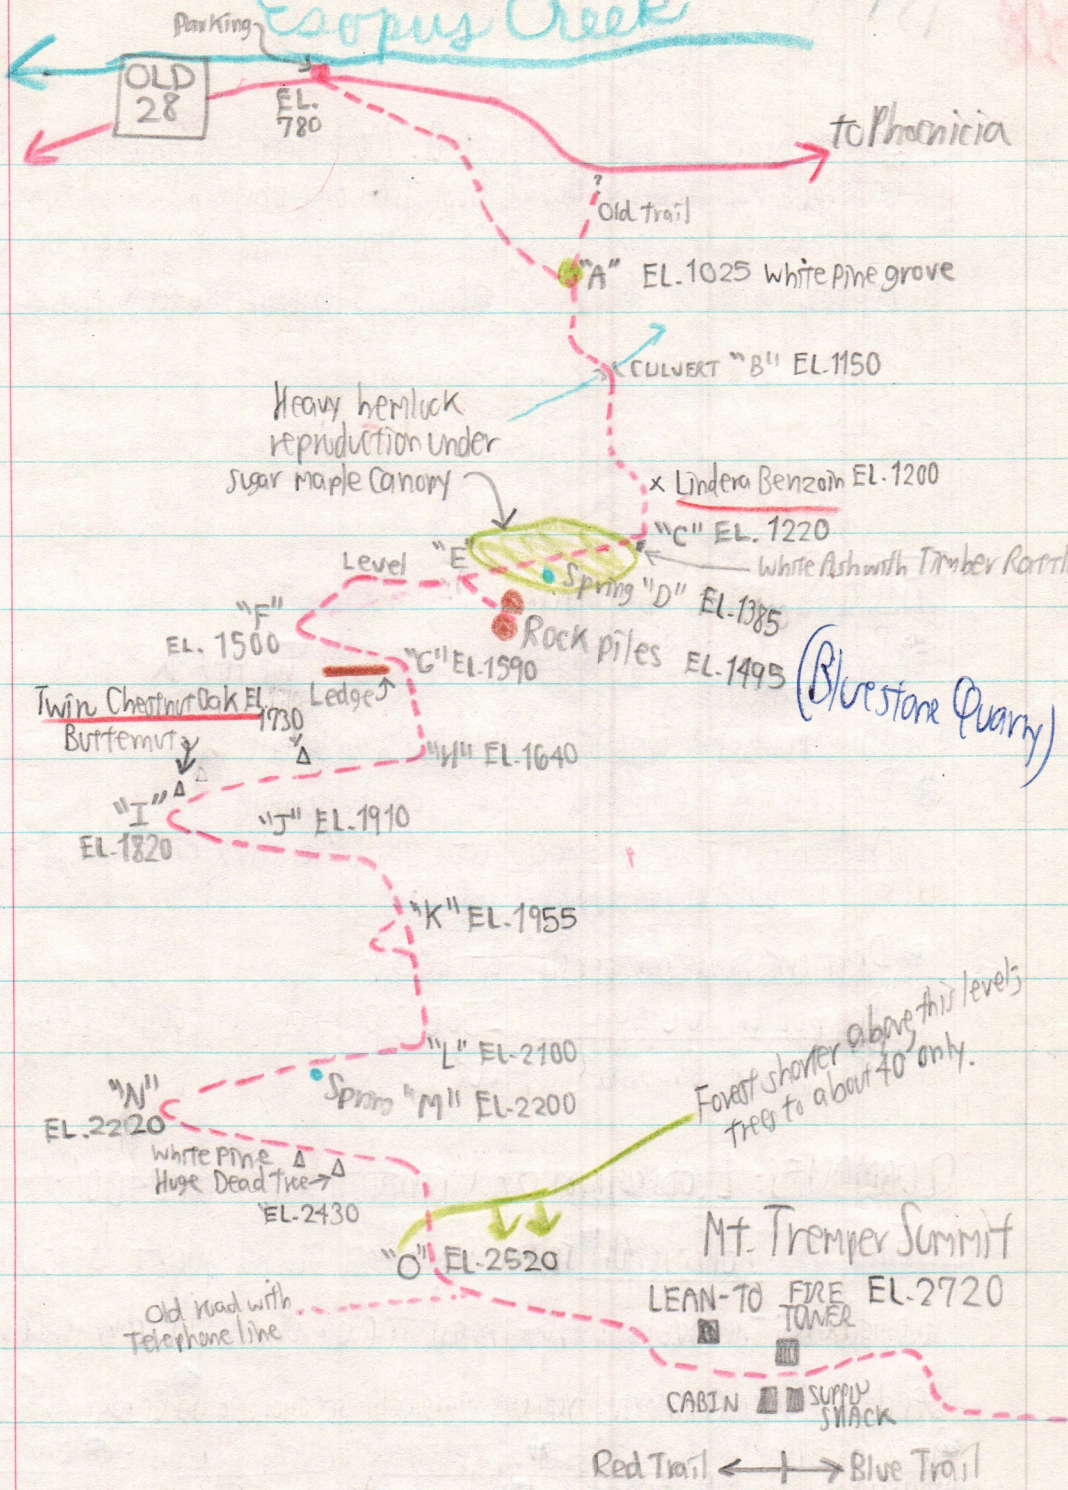 Esopus Creek
Parking
OLD
28
EL.
780
to Phoenicia
?
Old trail
"A" EL.1025 White pine grove
CULVERT "B" EL.1150
Heavy hemlock
reproduction under
sugar maple Canopy
x Lindera Benzoin EL.1200
"C" EL. 1220
White Ash with Timber
"E"
Level
Spring "D" EL.1385
"F"
EL. 1500
Rock piles EL.1495
(Bluestone Quarry)
"G" EL.1590
Ledge
Twin Chestnut Oak EL.
1730
Butternut
"H" EL.1640
"I"
EL.1820
"J" EL.1910
"K" EL.1955
"L" EL.2100
Spring "M" EL.2200
"N"
EL.2220
Forest shorter above this level;
trees to about 40' only.
White pine
Huge Dead tree
EL.2430
"O" EL.2520
Mt. Tremper Summit
EL.2720
LEAN-TO
FIRE
TOWER
Old road with
Telephone line
CABIN
SUPPLY
SHACK
Red Trail
Blue Trail